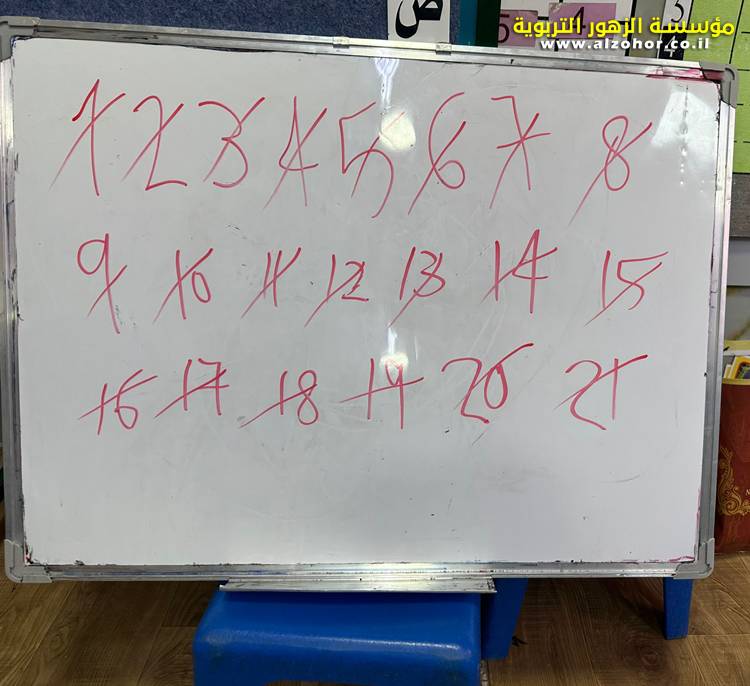 مؤسسة الزهور التربوية
www.alzohor.co.il
ص
5 4
3
4
1 2 3 4 5 6 7 8
9 10 11 12 13 14 15
16 17 18 19 20 21